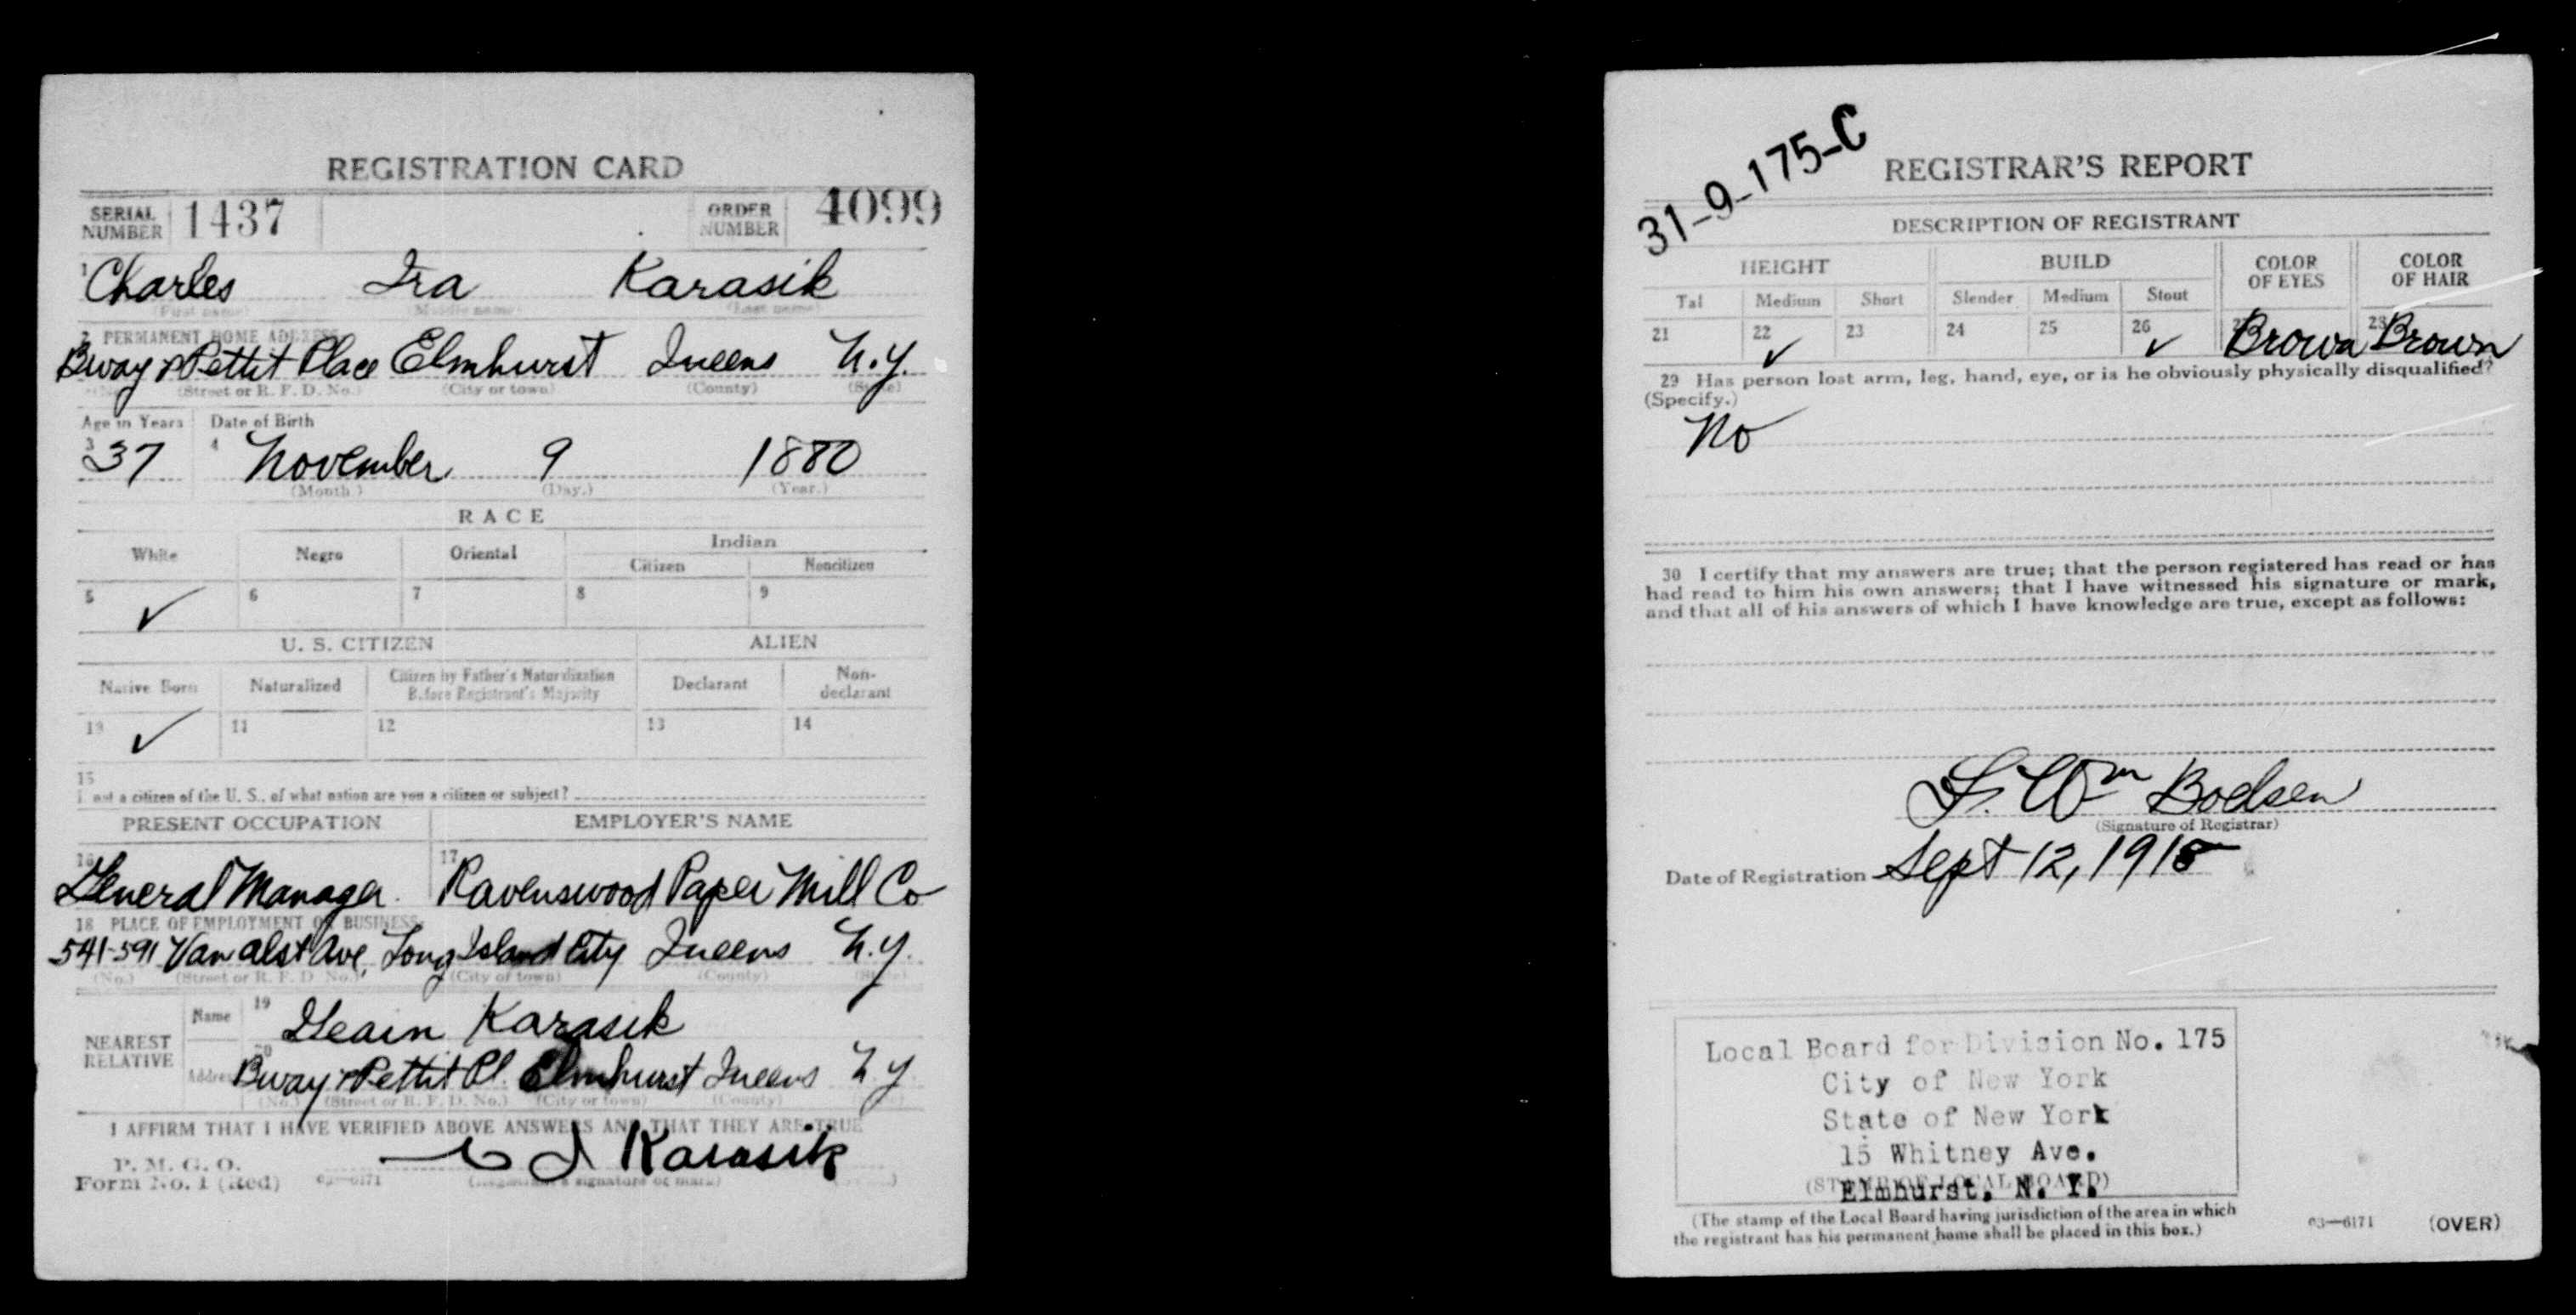 REGISTRATION CARD
SERIAL NUMBER 1437 ORDER NUMBER 4099
1 Charles Ira Karasik
(First name) (Middle name) (Last name)
2 PERMANENT HOME ADDRESS
Bway & Pettit Place Elmhurst Queens N.Y.
(No.) (Street or R. F. D. No.) (City or town) (County) (State)
Age in Years Date of Birth
3 37 4 November 9 1880
(Month.) (Day.) (Year.)
RACE
White Negro Oriental Indian
Citizen Noncitizen
5 ✓ 6 7 8 9
U. S. CITIZEN ALIEN
Native Born Naturalized Citizen by Father's Naturalization Before Registrant's Majority Declarant Non-declarant
10 ✓ 11 12 13 14
15
If not a citizen of the U. S., of what nation are you a citizen or subject?
PRESENT OCCUPATION EMPLOYER'S NAME
16 General Manager. 17 Ravenswood Paper Mill Co
18 PLACE OF EMPLOYMENT OR BUSINESS
541-591 Van alst Ave, Long Island City Queens N.Y.
(No.) (Street or R. F. D. No.) (City of town) (County) (State)
NEAREST RELATIVE Name 19 Karasik
Address 20 Bway & Pettit Pl. Elmhurst Queens N.Y
(No.) (Street or R. F. D. No.) (City or town) (County) (State)
I AFFIRM THAT I HAVE VERIFIED ABOVE ANSWERS AND THAT THEY ARE TRUE
P. M. G. O.
Form No. 1 (Red) 03—6171 C I Karasik
(Registrant's signature or mark)
31-9-175-C
REGISTRAR'S REPORT
DESCRIPTION OF REGISTRANT
HEIGHT BUILD COLOR OF EYES COLOR OF HAIR
Tal Medium Short Slender Medium Stout
21 22 ✓ 23 24 25 26 ✓ 27 Brown 28 Brown
29 Has person lost arm, leg, hand, eye, or is he obviously physically disqualified?
(Specify.)
No
30 I certify that my answers are true; that the person registered has read or has
had read to him his own answers; that I have witnessed his signature or mark,
and that all of his answers of which I have knowledge are true, except as follows:
Wm Bodsen
(Signature of Registrar)
Date of Registration Sept 12, 1918
Local Board for Division No. 175
City of New York
State of New York
15 Whitney Ave.
(STAMP OF LOCAL BOARD)
Elmhurst, N. Y.
(The stamp of the Local Board having jurisdiction of the area in which
the registrant has his permanent home shall be placed in this box.)
03—6171 (OVER)